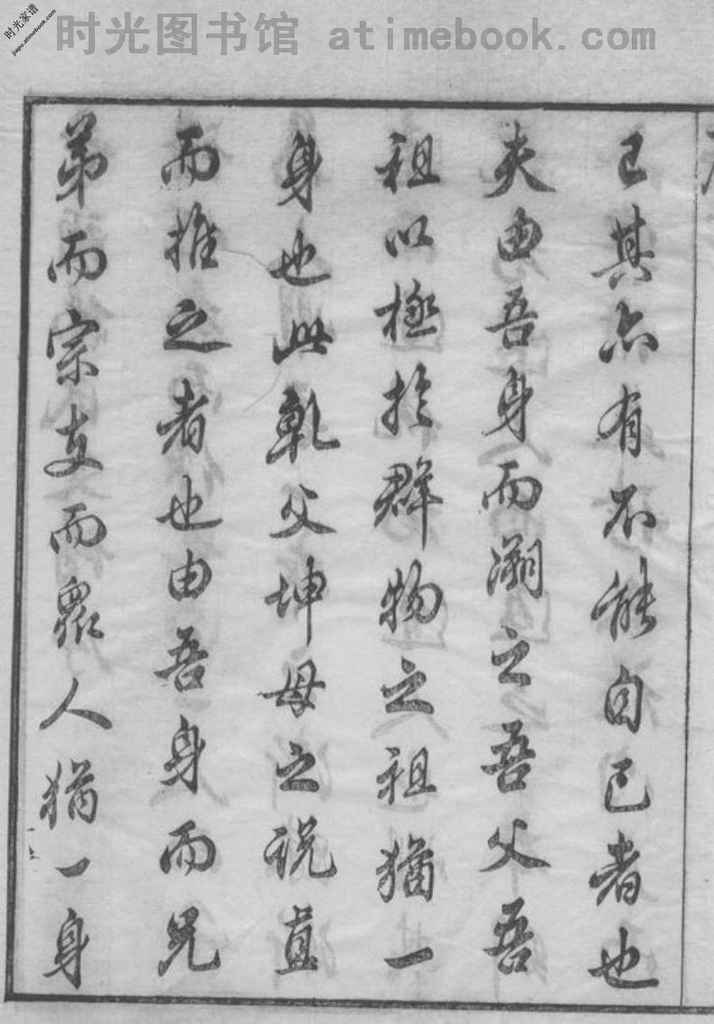 时光图书馆 atimebook.com
时光家谱
已其亦有不能自已者也
夫由吾身而溯之吾父吾
祖以極於群物之祖猶一
身也此乾父坤母之說直
而推之者也由吾身而兄
弟而宗支而衆人猶一身